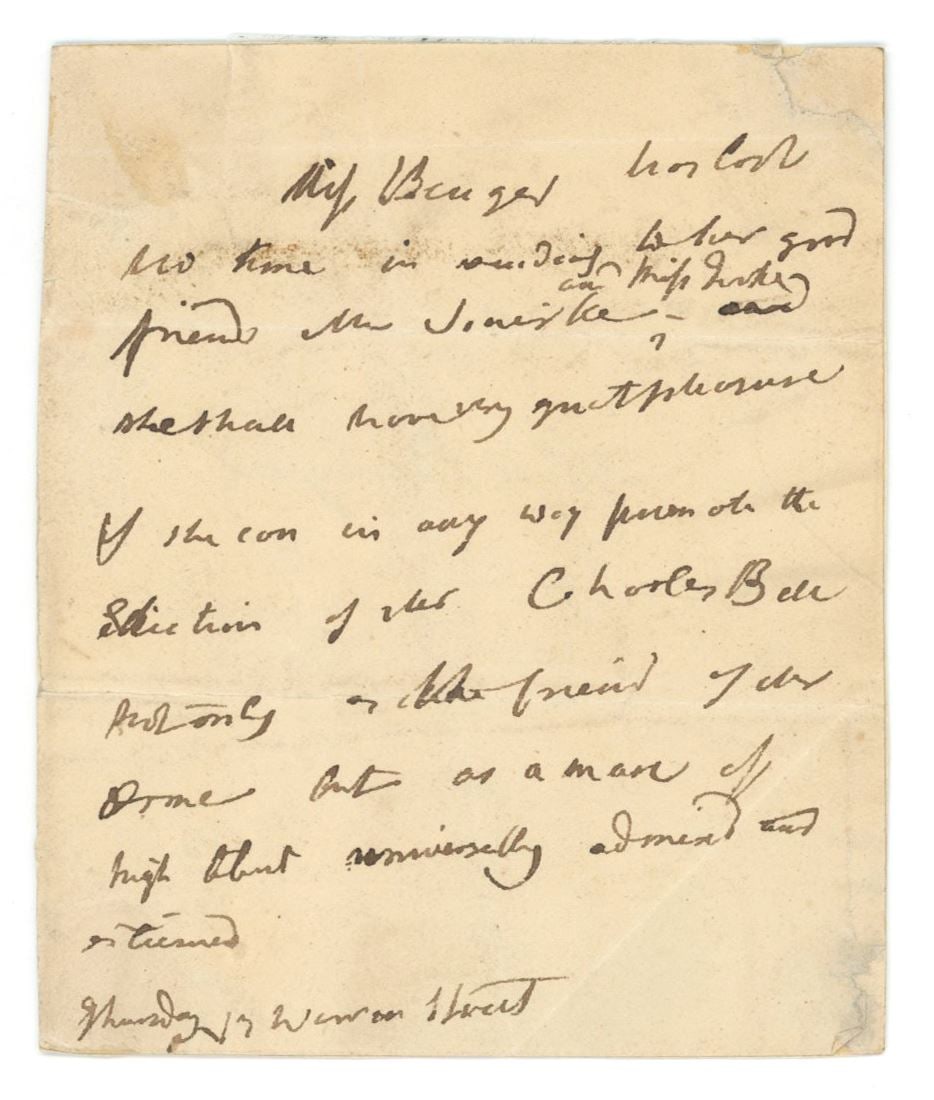 Miss Benger has lost
no time in sending to her good
and Miss
friends Mr Smirke, and
she shall have very great pleasure
if she can in any way promote the
Election of Mr Charles Bell
not only as the friend of Mr
Orme but as a man of
high talent universally admired and
esteemed
Thursday 17 Warren Street